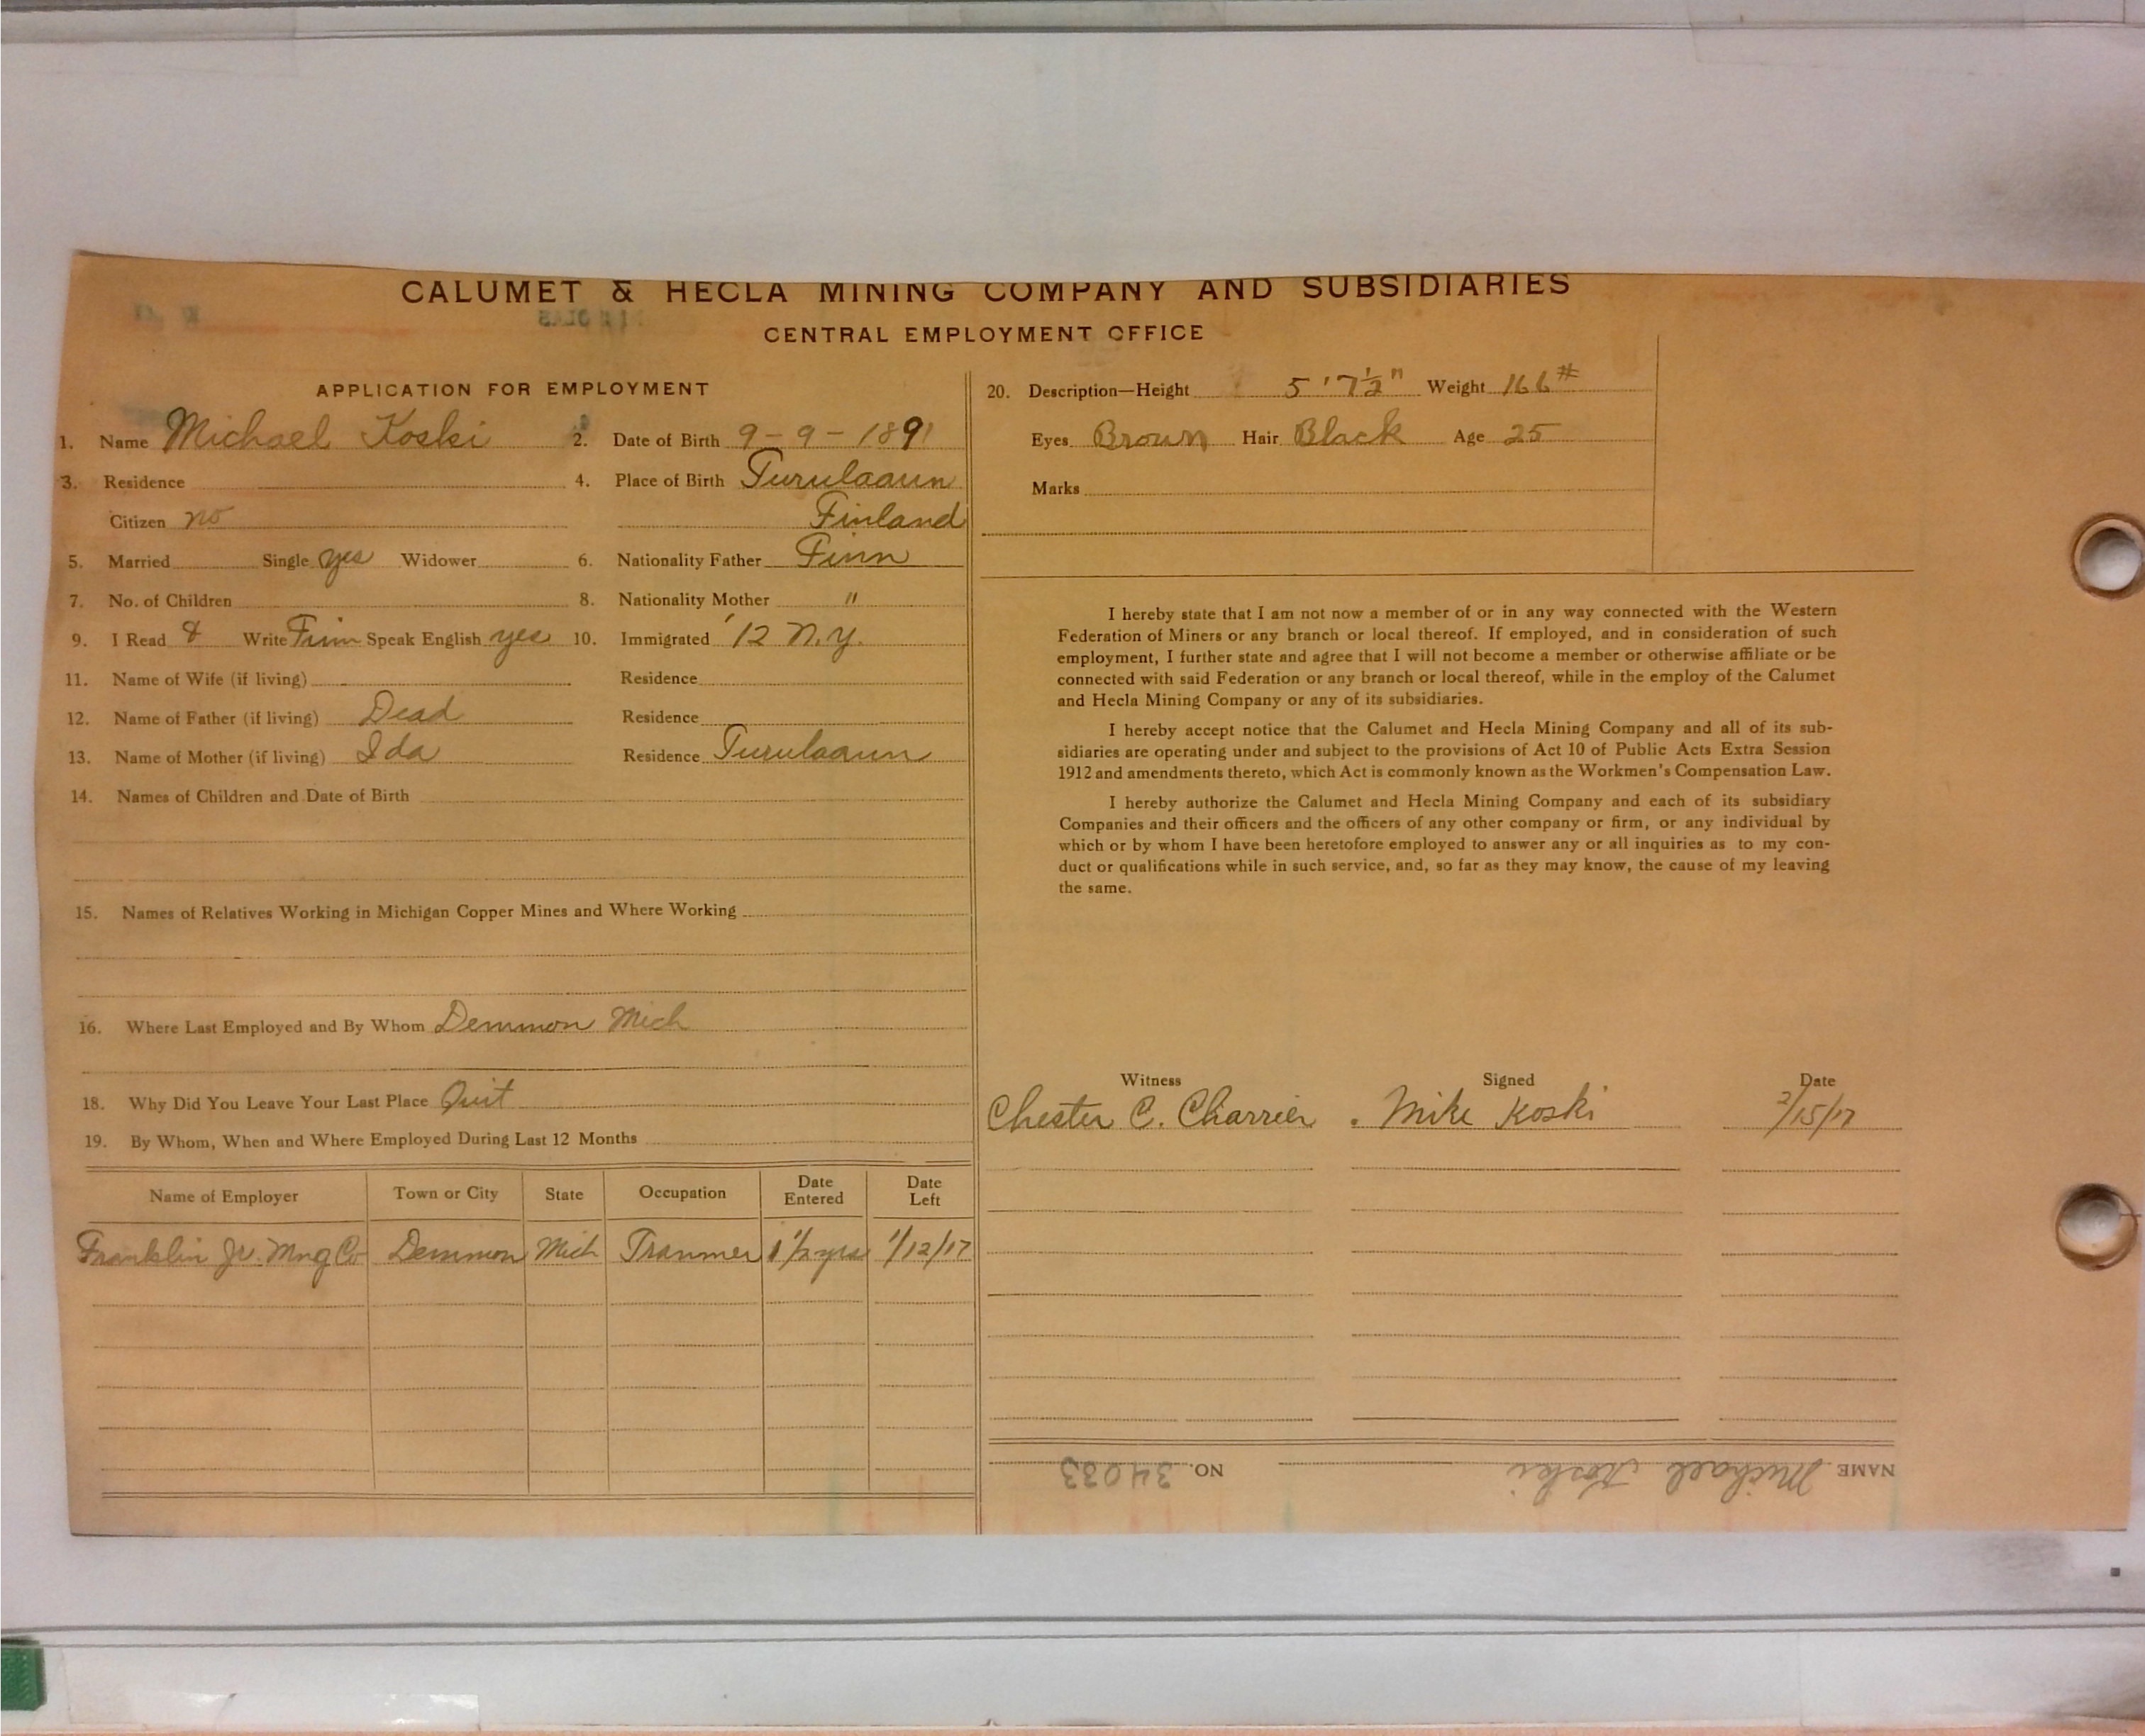 CALUMET & HECLA MINING COMPANY AND SUBSIDIARIES
CENTRAL EMPLOYMENT OFFICE
APPLICATION FOR EMPLOYMENT
1. Name Michael Koski 2. Date of Birth 9-9-1891
3. Residence 4. Place of Birth Turulaaun
Citizen no Finland
5. Married Single yes Widower 6. Nationality Father Finn
7. No. of Children 8. Nationality Mother "
9. I Read & Write Finn Speak English yes 10. Immigrated '12 N.Y.
11. Name of Wife (if living) Residence
12. Name of Father (if living) Dead Residence
13. Name of Mother (if living) Ida Residence Turulaaun
14. Names of Children and Date of Birth
15. Names of Relatives Working in Michigan Copper Mines and Where Working
16. Where Last Employed and By Whom Demmon Mich
18. Why Did You Leave Your Last Place Quit
19. By Whom, When and Where Employed During Last 12 Months
Name of Employer Town or City State Occupation Date Entered Date Left
Franklin Jr. Mng Co Demmon Mich Trammer 1 1/2 yrs 1/12/17
20. Description—Height 5'7½" Weight 166#
Eyes Brown Hair Black Age 25
Marks
I hereby state that I am not now a member of or in any way connected with the Western
Federation of Miners or any branch or local thereof. If employed, and in consideration of such
employment, I further state and agree that I will not become a member or otherwise affiliate or be
connected with said Federation or any branch or local thereof, while in the employ of the Calumet
and Hecla Mining Company or any of its subsidiaries.
I hereby accept notice that the Calumet and Hecla Mining Company and all of its sub-
sidiaries are operating under and subject to the provisions of Act 10 of Public Acts Extra Session
1912 and amendments thereto, which Act is commonly known as the Workmen's Compensation Law.
I hereby authorize the Calumet and Hecla Mining Company and each of its subsidiary
Companies and their officers and the officers of any other company or firm, or any individual by
which or by whom I have been heretofore employed to answer any or all inquiries as to my con-
duct or qualifications while in such service, and, so far as they may know, the cause of my leaving
the same.
Witness Signed Date
Chester C. Charrier Mike Koski 2/15/17
NAME Michael Koski NO. 34033